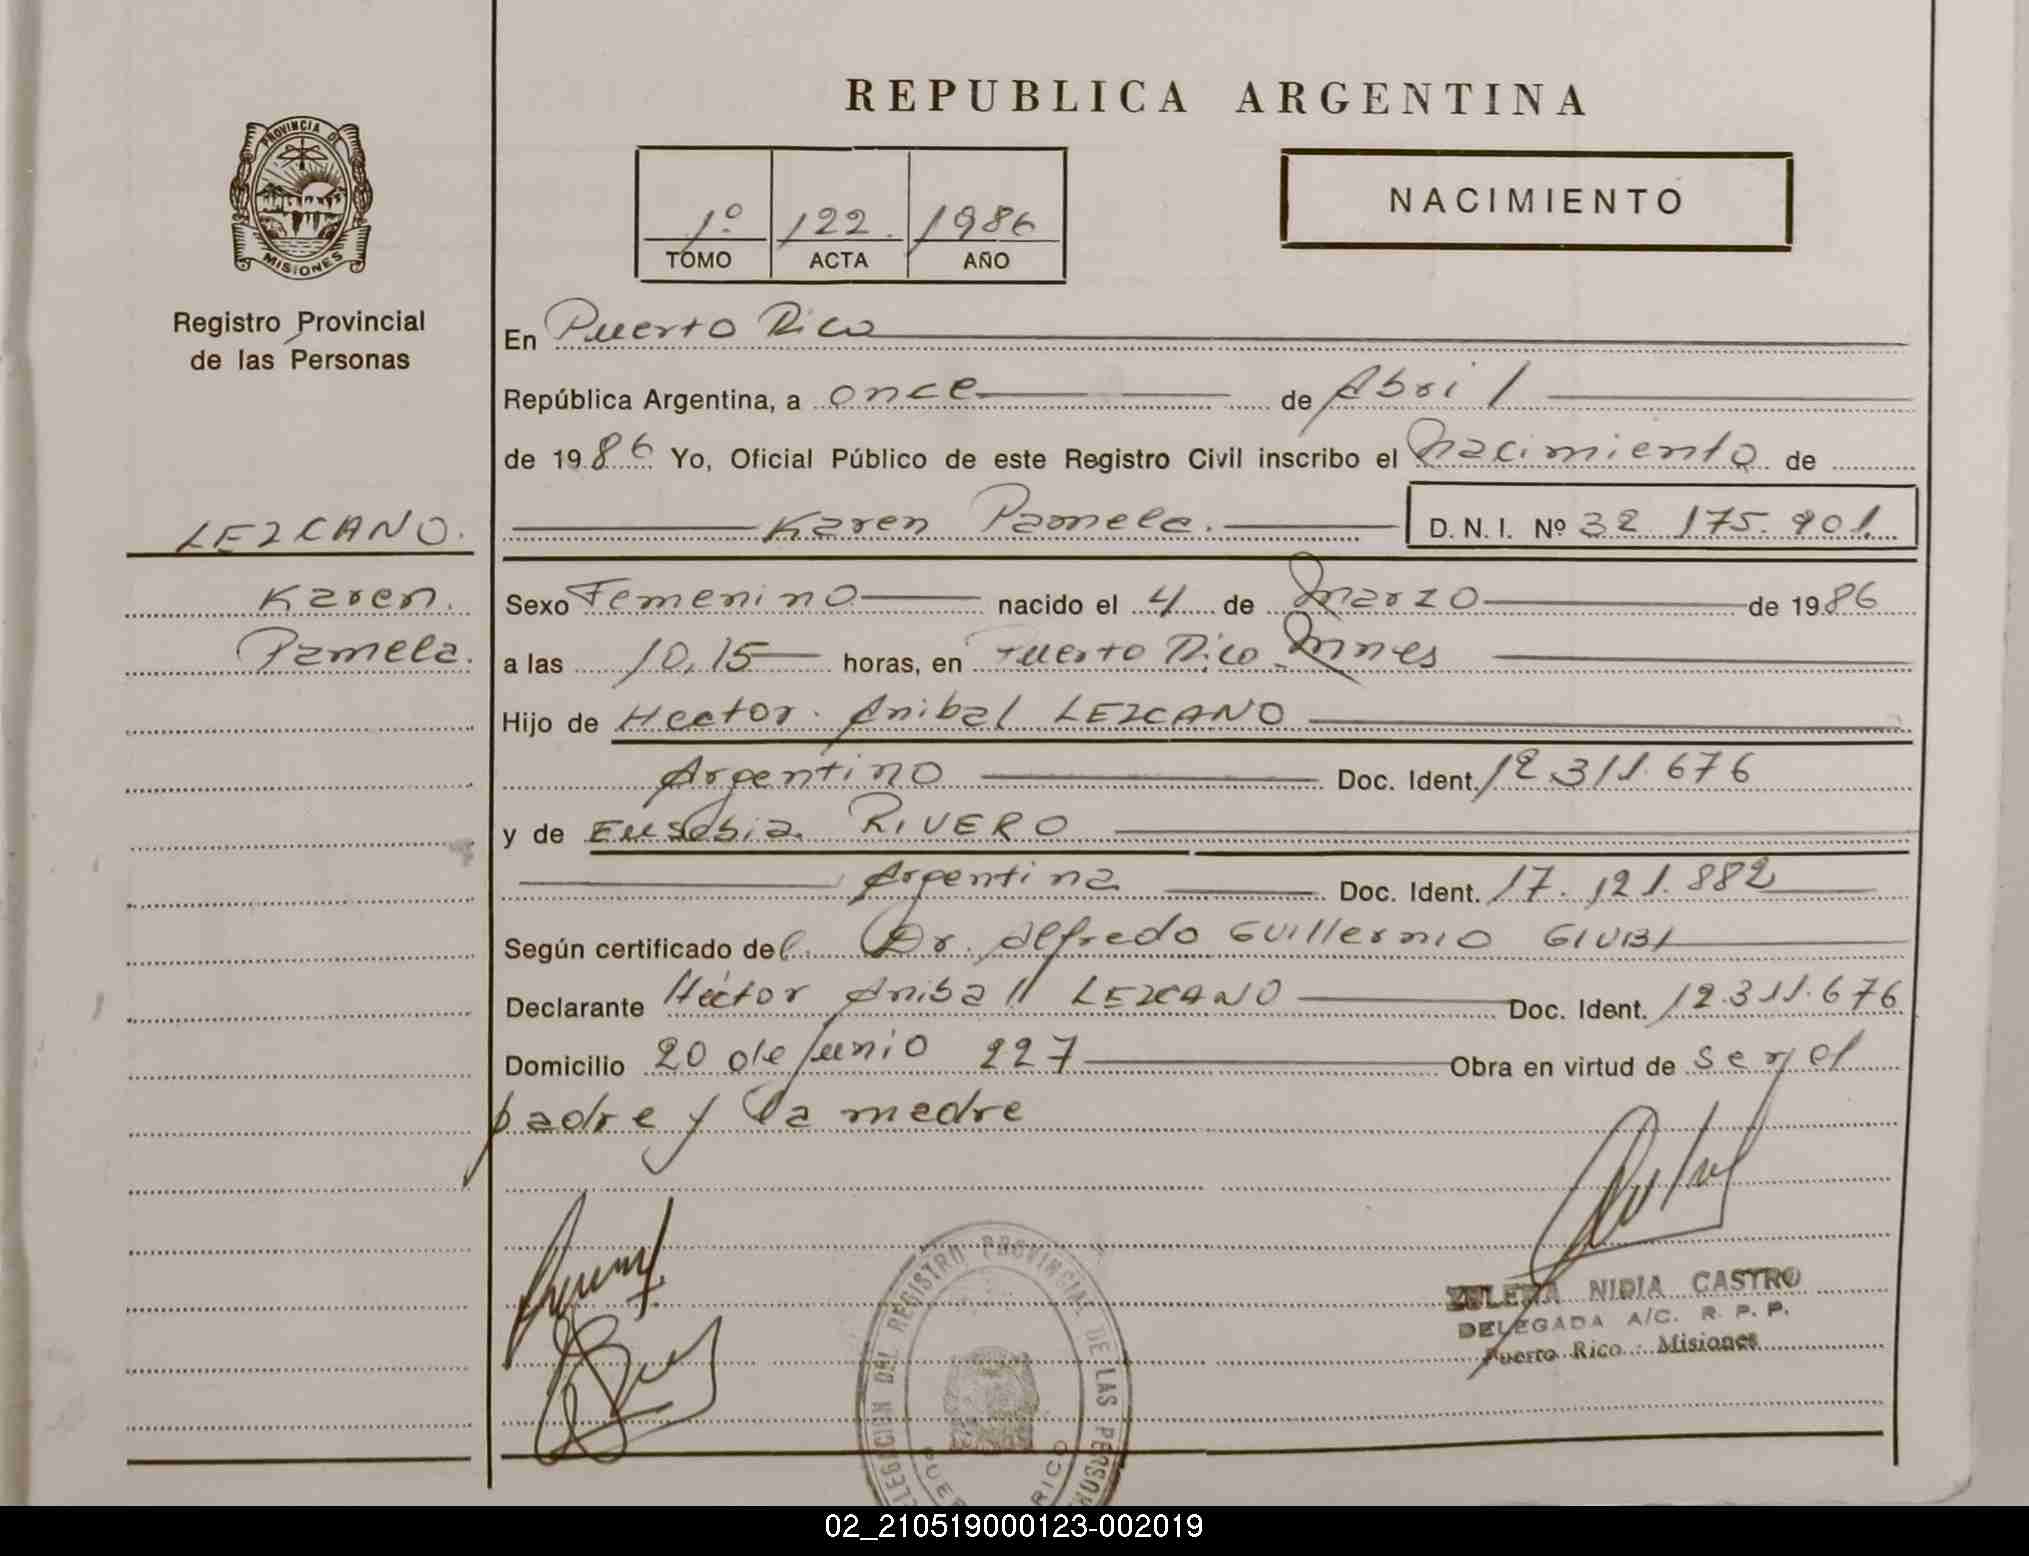 REPUBLICA ARGENTINA
PROVINCIA DE
MISIONES
Registro Provincial
de las Personas
1º 122 1986
TOMO ACTA AÑO
NACIMIENTO
En Puerto Rico
República Argentina, a once de Abril
de 1986 Yo, Oficial Público de este Registro Civil inscribo el Nacimiento de
LEZCANO.
Karen Pamela. D. N. I. Nº 32.175.901.
Karen.
Pamela.
Sexo Femenino nacido el 4 de Marzo de 1986
a las 10,15 horas, en Puerto Rico Mnes
Hijo de Hector Anibal LEZCANO
Argentino Doc. Ident. 12.311.676
y de Eusebia RIVERO
Argentina Doc. Ident. 17.121.882
Según certificado del Dr. Alfredo Guillermo GIUBI
Declarante Héctor Anibal LEZCANO Doc. Ident. 12.311.676
Domicilio 20 de Junio 227 Obra en virtud de ser el
padre y la madre
ZULEMA NIDIA CASTRO
DELEGADA A/C. R. P. P.
Puerto Rico - Misiones
DEL REGISTRO PROVINCIAL DE LAS
RICO
02_210519000123-002019